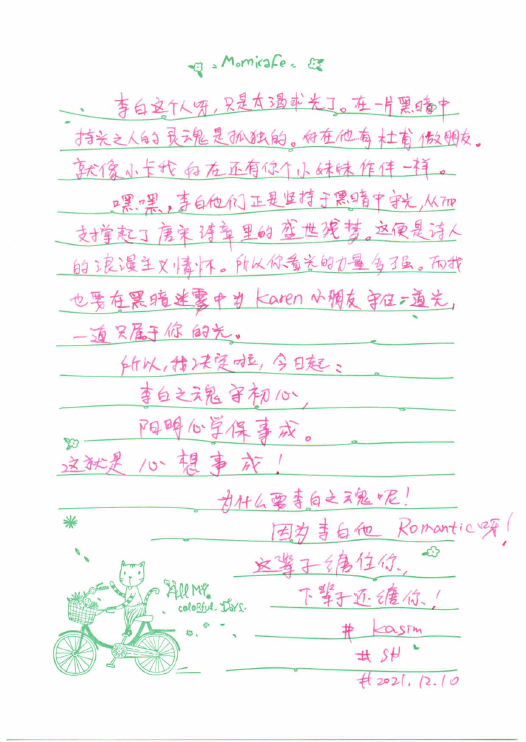 Momicafe
李白这个人呀,只是太渴求光了。在一片黑暗中
持光之人的灵魂是孤独的。好在他有杜甫做朋友。
就像小卡我 好在还有你个小妹妹作伴一样。
嘿嘿,李白他们正是坚持于黑暗中守光,从而
支撑起了唐宋诗章里的盛世残梦。这便是诗人
的浪漫主义情怀。所以你看光的力量多强。而我
也要在黑暗迷雾中为 Karen 小朋友守住一道光,
一道只属于你的光。
所以,我决定啦,今日起:
李白之魂守初心,
阳明心学保事成。
这就是 心想事成!
为什么要李白之魂呢!
因为李白他 Romantic呀!
这辈子缠住你,
下辈子还缠你!
All My
colorful Days.
# kasim
# SH
# 2021.12.10